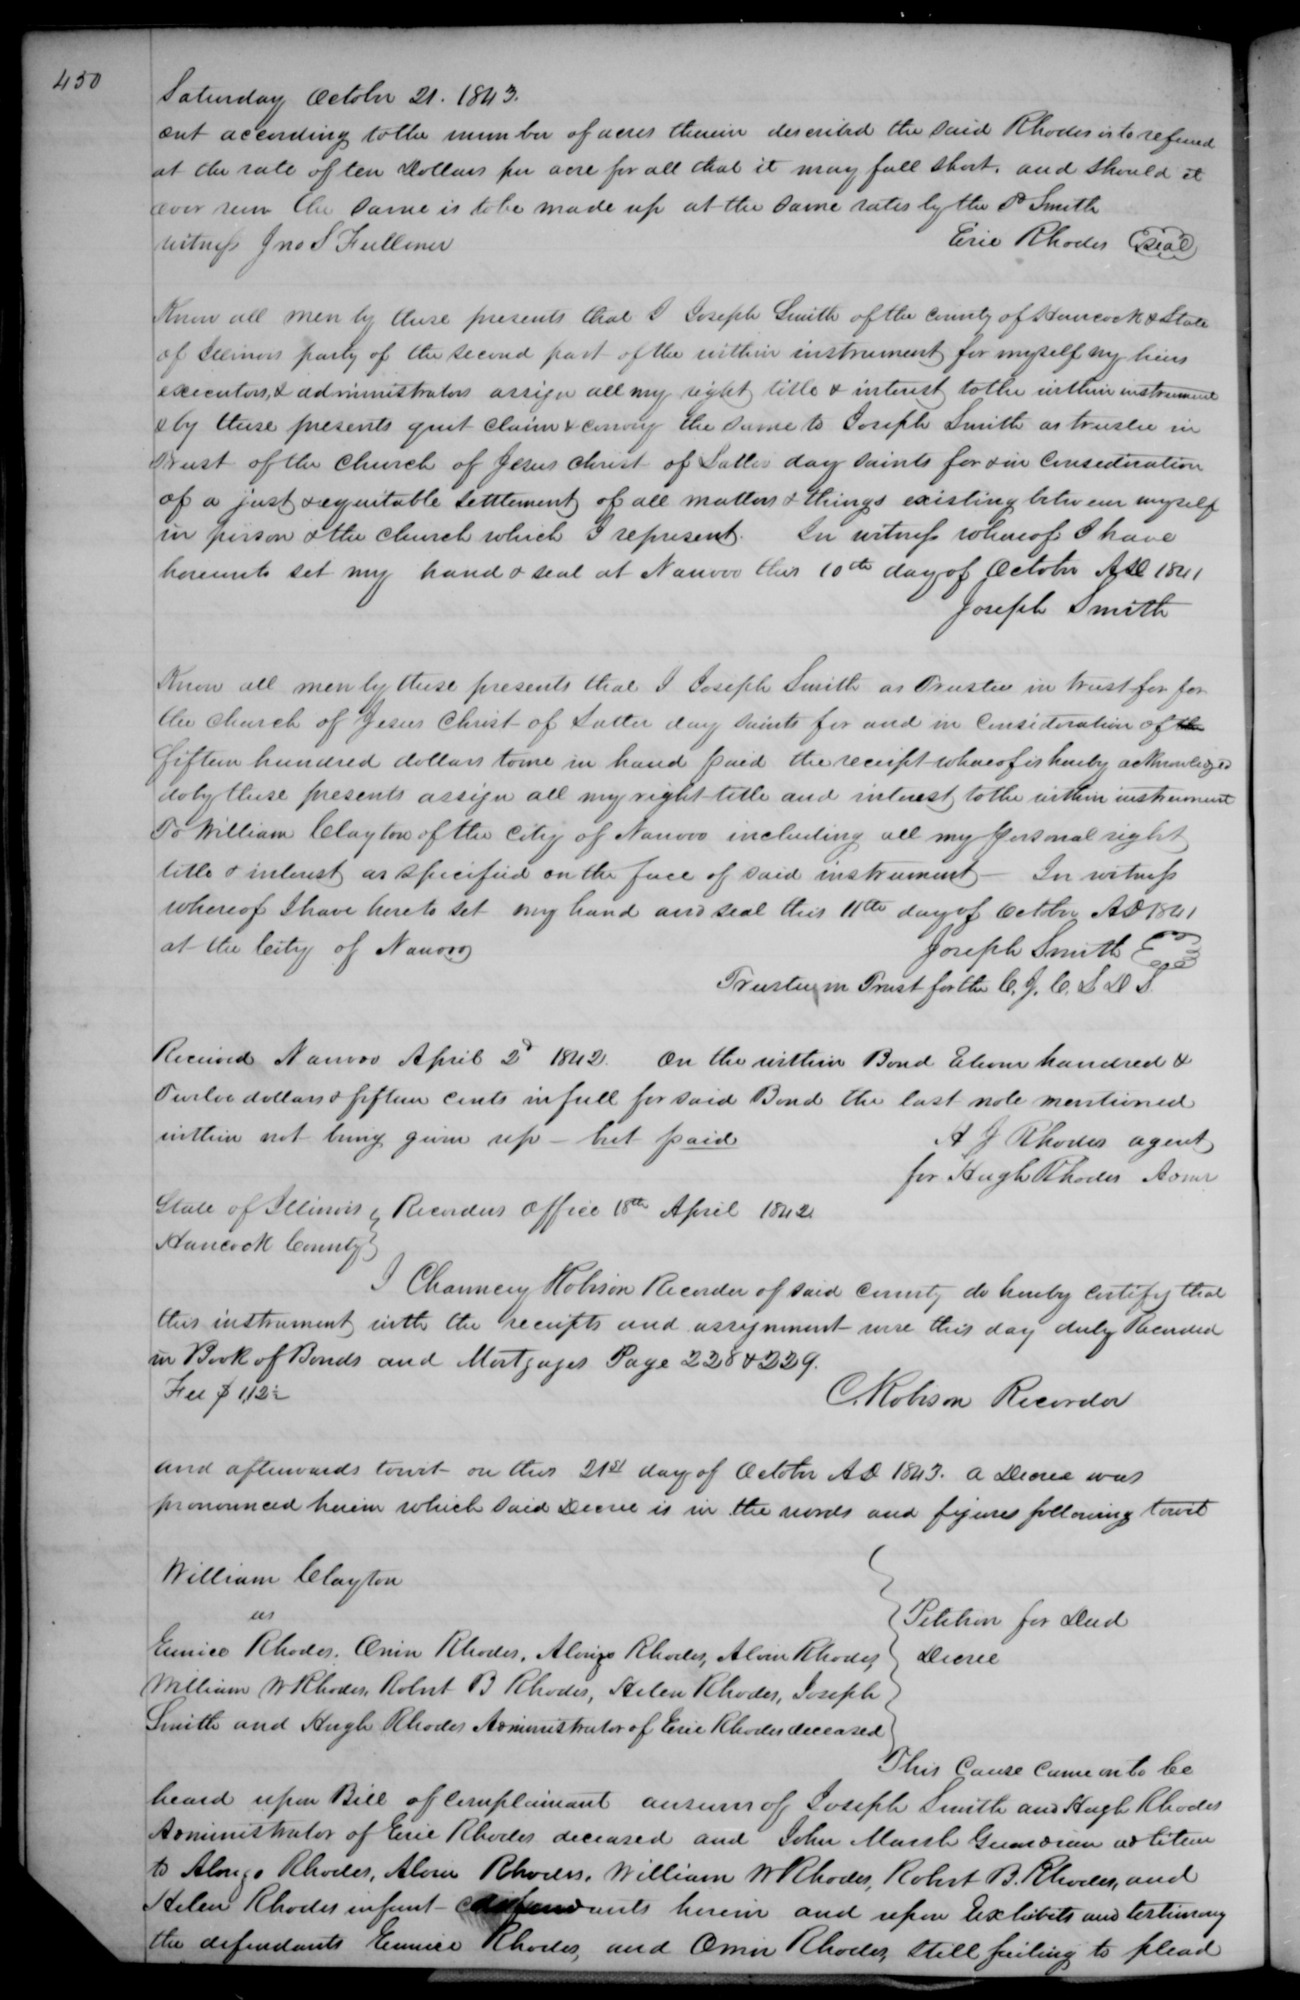 450
Saturday October 21. 1843.
out according to the number of acres therein described the said Rhodes is to refund
at the rate of ten Dollars per acre for all that it may fall short. and should it
over run the same is to be made up at the same rates by the sd Smith
witness Jno S Fullmer Eric Rhodes (seal)
Know all men by these presents that I Joseph Smith of the county of Hancock & State
of Illinois party of the second part of the within instrument for myself my heirs
executors, & administrators assign all my right title & interest to the within instrument
& by these presents quit claim & convey the same to Joseph Smith as trustee in
Trust of the Church of Jesus Christ of Latter day saints for & in Consideration
of a just & equitable settlement of all matters & things existing between myself
in person & the church which I represent. In witness whereof I have
hereunto set my hand & seal at Nauvoo this 10th day of October AD 1841
Joseph Smith
Know all men by these presents that I Joseph Smith as Trustee in trust for for
the church of Jesus Christ of Latter day saints for and in Consideration of the
fifteen hundred dollars to me in hand paid the receipt whereof is hereby acknowledged
do by these presents assign all my right title and interest to the within instrument
To William Clayton of the City of Nauvoo including all my personal right
title & interest as specified on the face of said instrument— In witness
whereof I have hereto set my hand and seal this 11th day of October AD 1841
at the City of Nauvoo Joseph Smith
Trustee in Trust for the C. J. C. L D S.
Received Nauvoo April 2d 1842. On the within Bond Eleven hundred &
Twelve dollars & fifteen cents in full for said Bond the last note mentioned
within not being given up — but paid A J Rhodes agent
for Hugh Rhodes Admr
State of Illinois } Recorders office 18th April 1842
Hancock County }
I Chauncey Robison Recorder of said county do hereby certify that
this instrument with the receipts and assignment were this day duly Recorded
in Book of Bonds and Mortgages Page 228 & 229.
Fee $ 1,12½ C. Robison Recorder
and afterwards towit on this 21st day of October AD 1843. a Decree was
pronounced herein which said Decree is in the words and figures following towit
William Clayton
vs Petition for Deed
Eunice Rhodes. Orrin Rhodes, Alonzo Rhodes, Alvin Rhodes, Decree
William W Rhodes, Robert B Rhodes, Helen Rhodes, Joseph
Smith and Hugh Rhodes Administrator of Eric Rhodes deceased
This Cause came on to be
heard upon Bill of Complainant answers of Joseph Smith and Hugh Rhodes
Administrator of Eric Rhodes deceased and John Marsh Guardian ad litem
to Alonzo Rhodes, Alvin Rhodes, William W Rhodes, Robert B. Rhodes, and
Helen Rhodes infant defendants herein and upon Exhibits and testimony
the defendants Eunice Rhodes, and Orrin Rhodes, still failing to plead